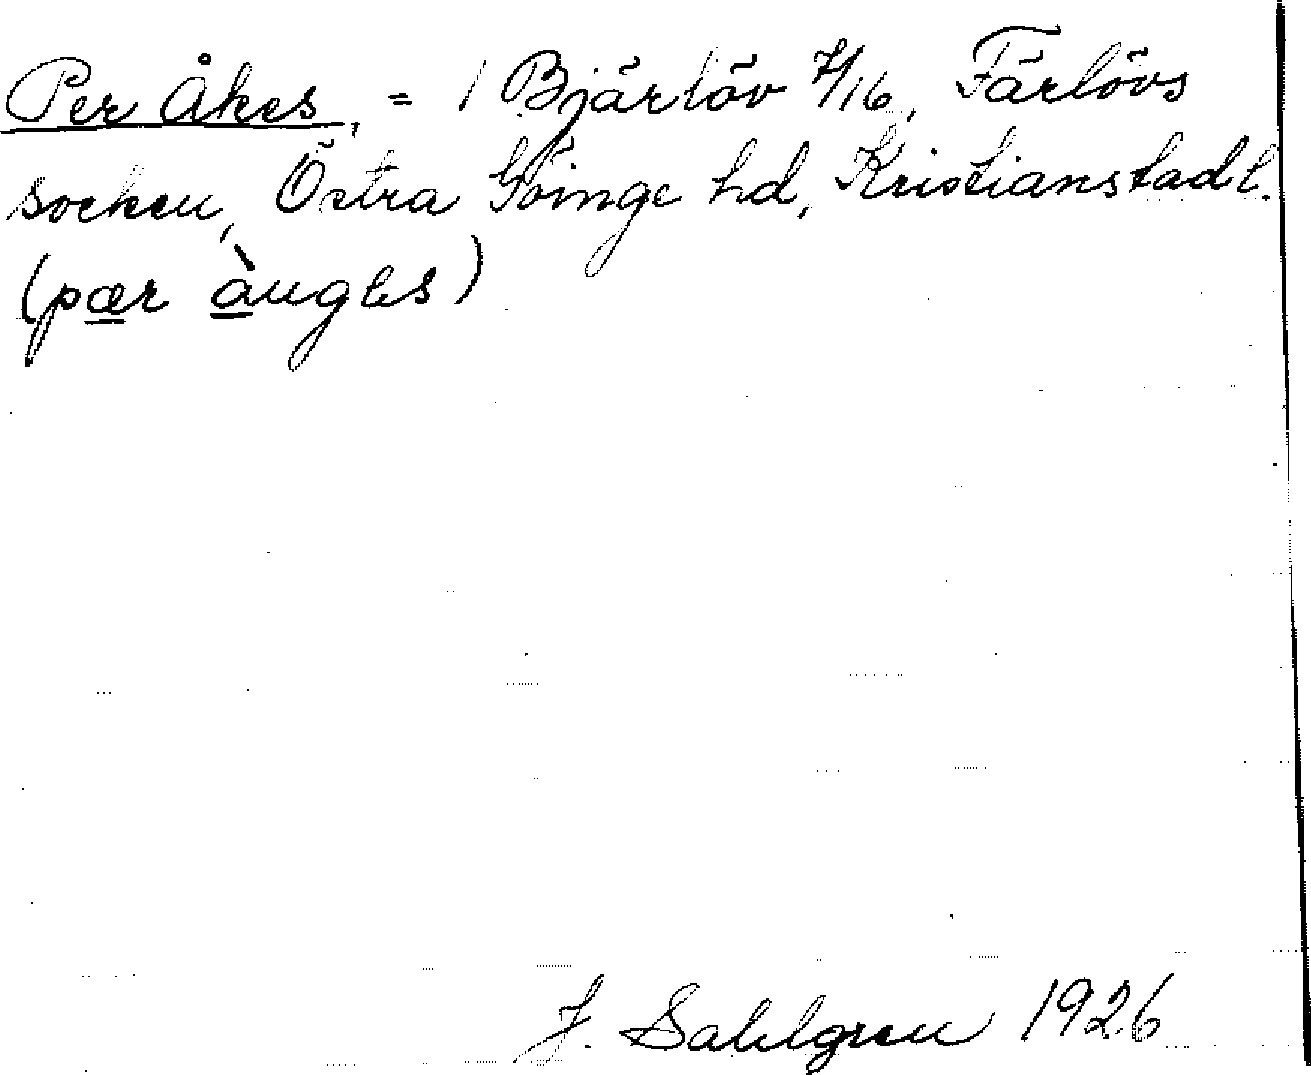 Per Åkes, = 1 Bjärlöv 7/16, Färlövs
socken, Östra Göinge hd, Kristianstad l.
(pær àugəs)
J. Sahlgren 1926